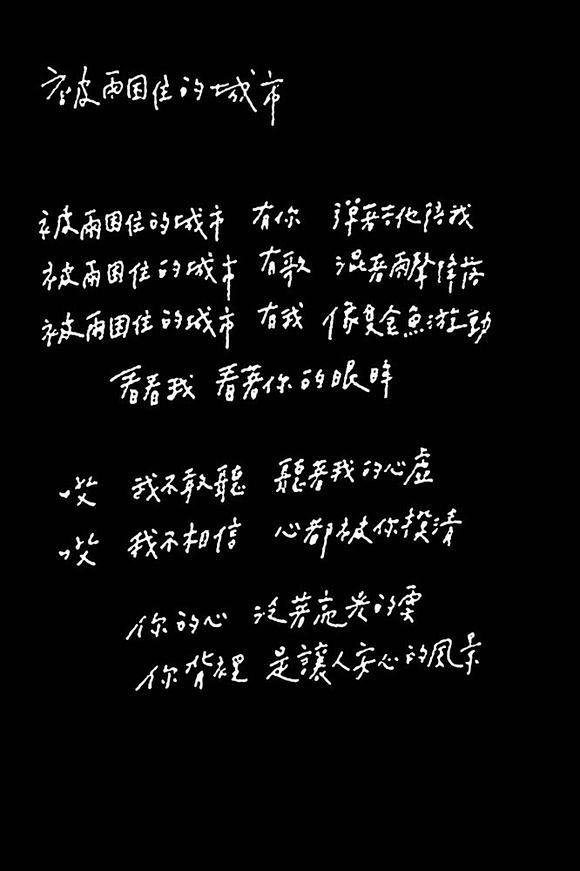 被雨困住的城市
被雨困住的城市 有你 彈著吉他陪我
被雨困住的城市 有歌 混著雨聲降落
被雨困住的城市 有我 像隻金魚游動
看看我 看著你的眼眸
哎 我不敢聽 聽著我的心虛
哎 我不相信 心都被你摸清
你的心 泛著亮光的雲
你背裡 是讓人安心的風景